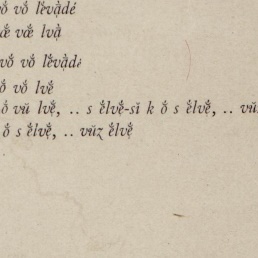 vǒ́ vǒ́ lě́vạ̀dé
vǣ́ vǣ lvạ̀
vǒ́ vǒ́ lě́vạ̀dé
ǒ́ vǒ́ lvě́
ǒ́ vŭ lvě̩́, .. s ě́lvě̩́-sĭ k ǒ́ s ě́lvě̩́, .. vŭ
ǒ́ s ě́lvě̩́, .. vŭz̨ ě́lvě̩́